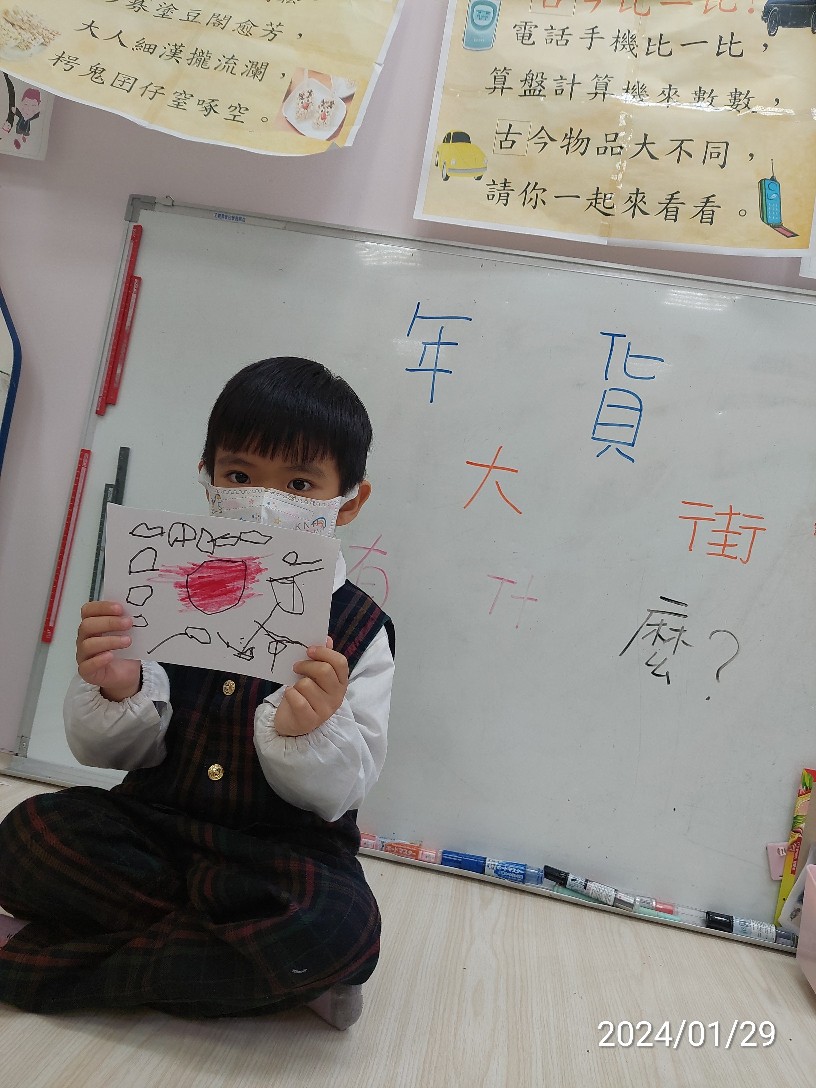 大人細漢攏流瀾，
空。
古今比一比！
電話手機比一比，
算盤計算機來數數，
古今物品大不同，
請你一起來看看。
年貨
大街
有什
麼？
2024/01/29